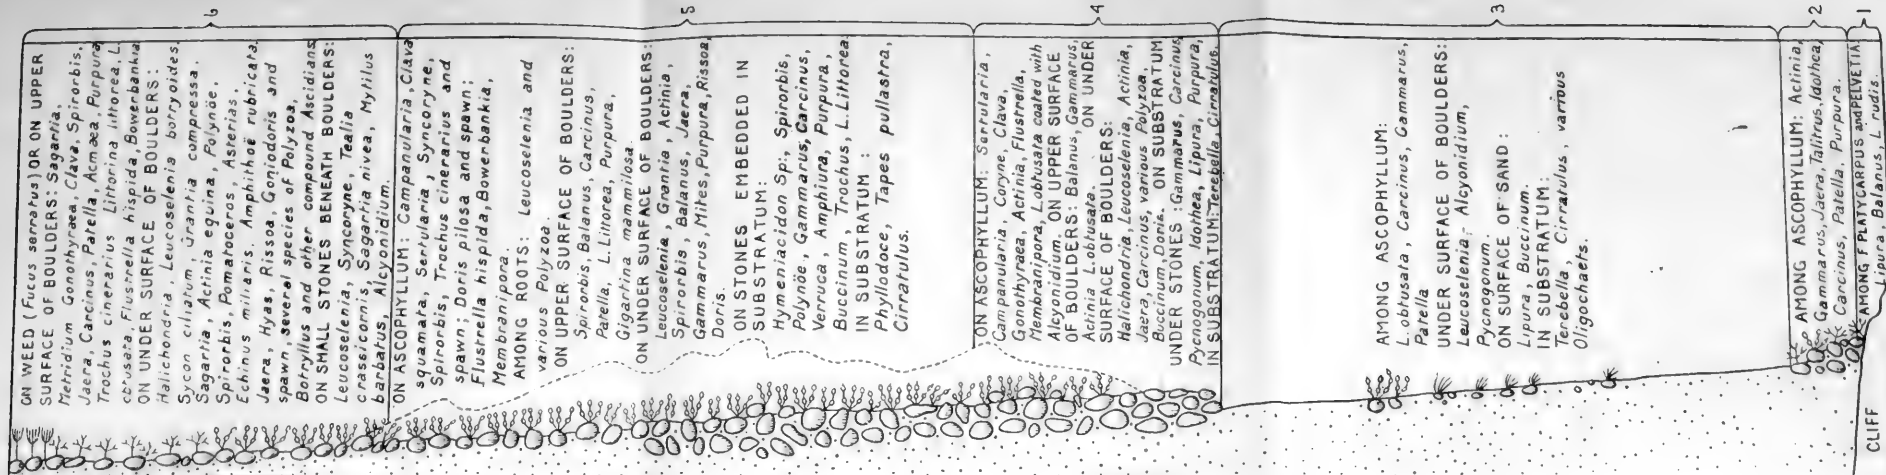 6
ON WEED (Fucus serratus) OR ON UPPER
SURFACE OF BOULDERS: Sagartia,
Metridium Gonothyraea, Clava, Spirorbis,
Jaera, Carcinus, Patella, Acmaea, Purpura,
Trochus cinerarius Littorina littorea, L.
obtusata, Flustrella hispida, Bowerbankia
ON UNDER SURFACE OF BOULDERS:
Halichondria, Leucoselenia botryoides,
Sycon ciliatum, Grantia compressa.
Sagartia, Actinia equina, Polynöe,
Spirorbis, Pomatoceros, Asterias,
Echinus miliaris, Amphithoë rubricata,
Jaera, Hyas, Rissoa, Goniodoris and
spawn, several species of Polyzoa,
Botryllus and other compound Ascidians
ON SMALL STONES BENEATH BOULDERS:
Leucoselenia, Syncoryne, Tealia
crassicornis, Sagartia nivea, Mytilus
barbatus, Alcyonidium.
5
ON ASCOPHYLLUM: Campanularia, Clava
squamata, Sertularia, Syncoryne,
Spirorbis, Trochus cinerarius and
spawn; Doris pilosa and spawn;
Flustrella hispida, Bowerbankia,
Membranipora.
AMONG ROOTS: Leucoselenia and
various Polyzoa.
ON UPPER SURFACE OF BOULDERS:
Spirorbis, Balanus, Carcinus,
Patella, L. Littorea, Purpura,
Gigartina mammilosa.
ON UNDER SURFACE OF BOULDERS:
Leucoselenia, Grantia, Actinia,
Spirorbis, Balanus, Jaera,
Gammarus, Mites, Purpura, Rissoa,
Doris.
ON STONES EMBEDDED IN
SUBSTRATUM:
Hymeniacidon Sp:, Spirorbis,
Polynöe, Gammarus, Carcinus,
Verruca, Amphiura, Purpura,
Buccinum, Trochus, L. Littorea.
IN SUBSTRATUM:
Phyllodoce, Tapes pullastra,
Cirratulus.
4
ON ASCOPHYLLUM: Serrularia,
Campanularia, Coryne, Clava,
Gonothyraea, Actinia, Flustrella,
Membranipora, L obtusata coated with
Alcyonidium. ON UPPER SURFACE
OF BOULDERS: Balanus, Gammarus,
Actinia L.obtusata. ON UNDER
SURFACE OF BOULDERS:
Halichondria, Leucoselenia, Actinia,
Jaera, Carcinus, various Polyzoa,
Buccinum, Doris. ON SUBSTRATUM
UNDER STONES: Gammarus, Carcinus,
Pycnogonum, Idothea, Lipura, Purpura,
IN SUBSTRATUM: Terebella, Cirratulus.
3
AMONG ASCOPHYLLUM:
L.obtusata, Carcinus, Gammarus,
Patella
UNDER SURFACE OF BOULDERS:
Leucoselenia, Alcyonidium,
Pycnogonum.
ON SURFACE OF SAND:
Lipura, Buccinum.
IN SUBSTRATUM:
Terebella, Cirratulus, various
Oligochaets.
2
AMONG ASCOPHYLLUM: Actinia,
Gammarus, Jaera, Talitrus, Idothea,
Carcinus, Patella, Purpura.
1
AMONG F PLATYCARPUS and PELVETIA:
Lipura, Balanus, L rudis.
CLIFF